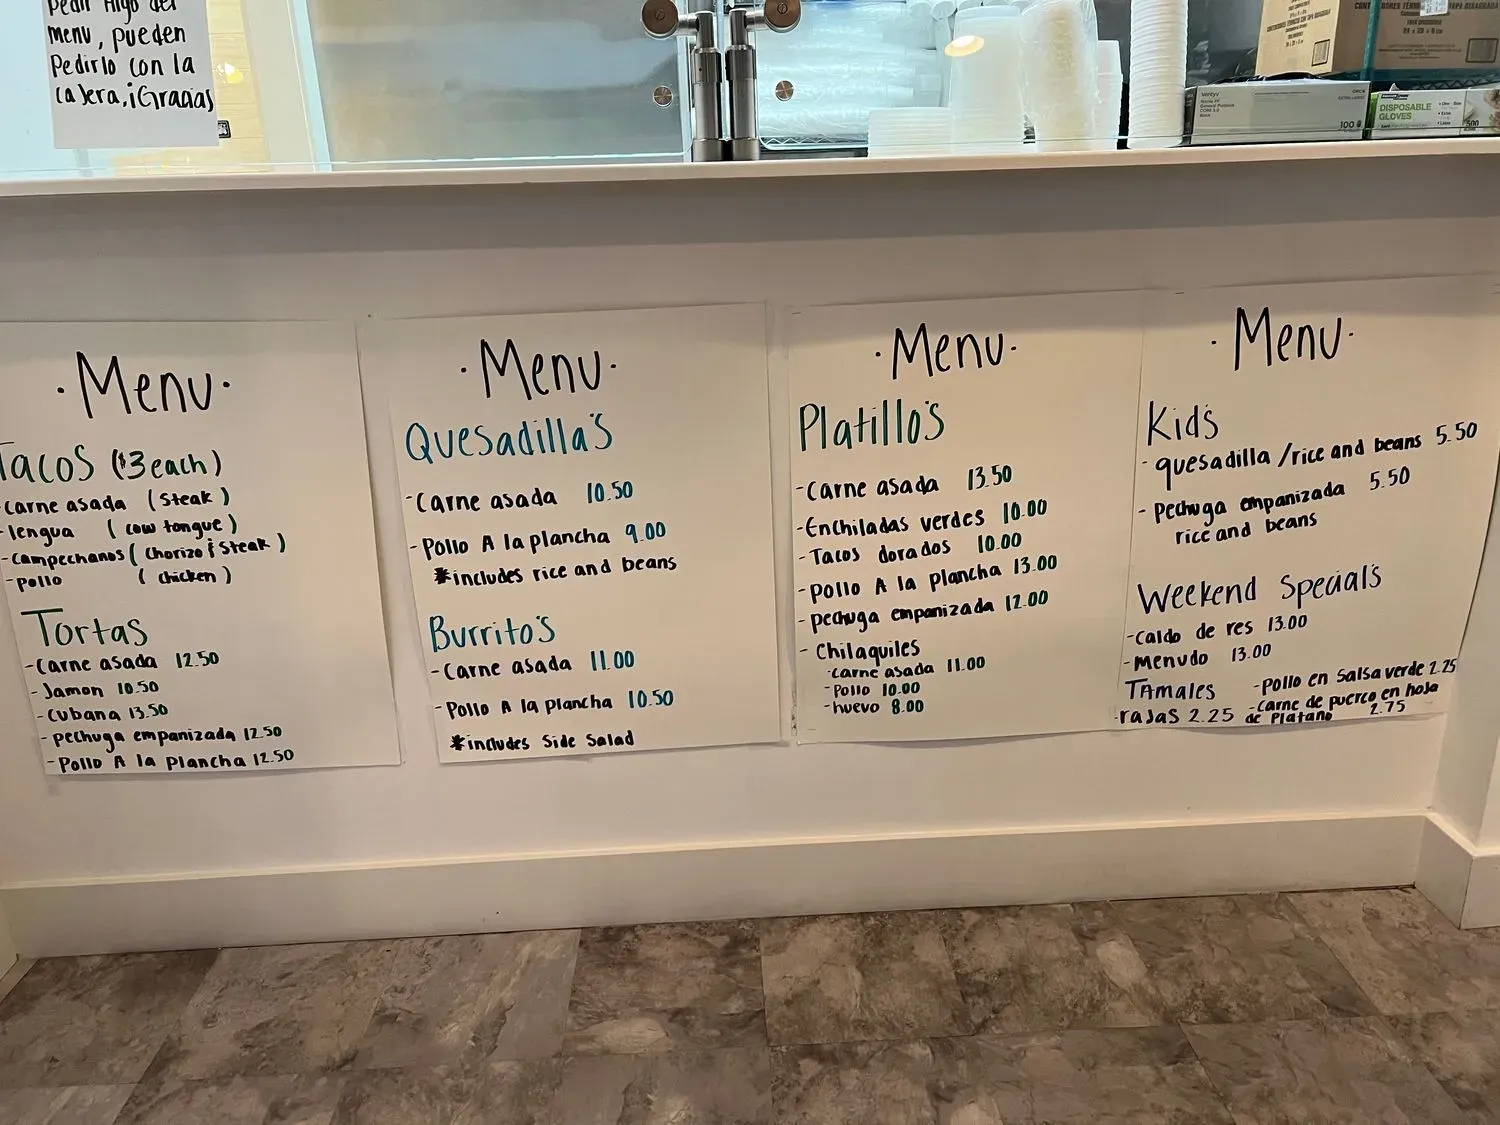 Pedir Algo del
menu, pueden
Pedirlo con la
cajera, ¡Gracias
CONTENEDORES TÉRMICOS CON TAPA BISAGRADA
Ventyv
ORCA
100
DISPOSABLE
GLOVES
500
·Menu·
Tacos ($3 each)
-Carne asada (Steak)
-lengua (cow tongue)
-Campechanos (Chorizo & Steak)
-pollo (chicken)
Tortas
-Carne asada 12.50
-Jamon 10.50
-Cubana 13.50
-pechuga empanizada 12.50
-Pollo A la plancha 12.50
·Menu·
Quesadilla's
-Carne asada 10.50
-Pollo A la plancha 9.00
*includes rice and beans
Burrito's
-Carne asada 11.00
-Pollo A la plancha 10.50
*includes Side Salad
·Menu·
Platillo's
-Carne asada 13.50
-Enchiladas verdes 10.00
-Tacos dorados 10.00
-pollo A la plancha 13.00
-pechuga empanizada 12.00
- Chilaquiles
-carne asada 11.00
-Pollo 10.00
-huevo 8.00
·Menu·
Kid's
-quesadilla /rice and beans 5.50
- Pechuga empanizada 5.50
rice and beans
Weekend Special's
-Caldo de res 13.00
-Menudo 13.00
TAmales
-rajas 2.25
-Pollo en Salsa verde 2.25
-Carne de puerco en hoja
de Platano 2.75